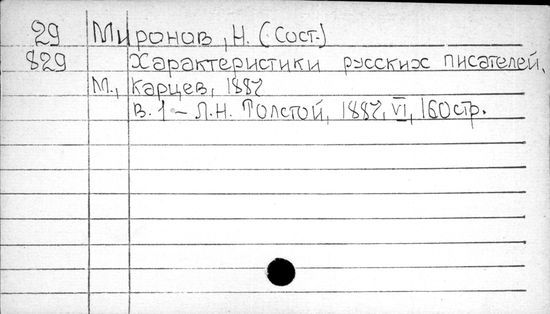 29 Миронов, Н. (Сост.)
829 Характеристики русских писателей.
М., Карцев, 1887
В. 1 – Л.Н. Толстой, 1887, VI, 160стр.